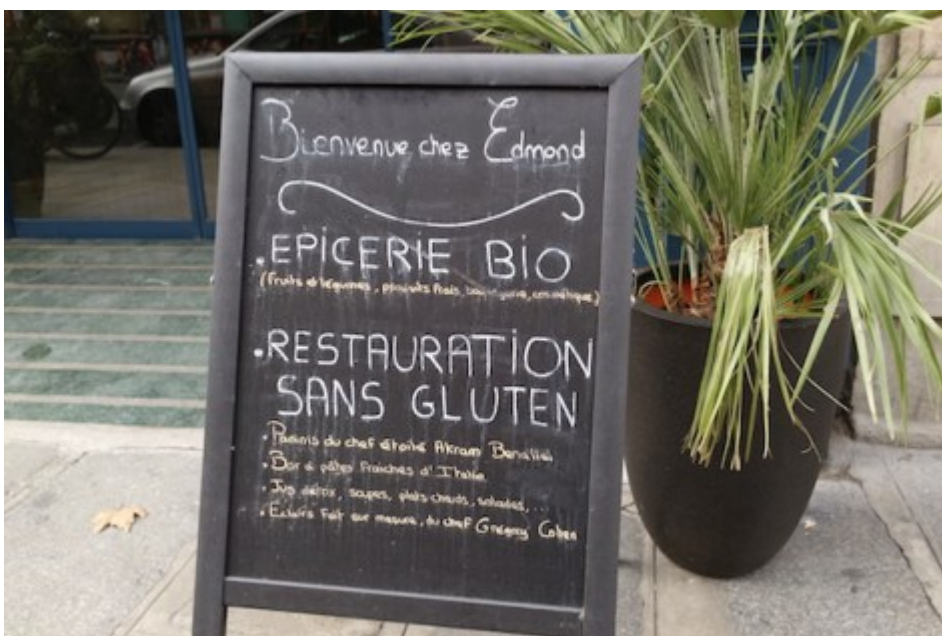 Bienvenue chez Edmond
.EPICERIE BIO
(Fruits et légumes, produits frais, boulangerie, cosmétique)
.RESTAURATION
SANS GLUTEN
. Paninis du chef étoilé Akram Benallal
. Bar à pâtes fraiches d'Italie
. Jus detox, soupes, plats chauds, salades, ...
. Eclairs fait sur mesure, du chef Grégory Cohen